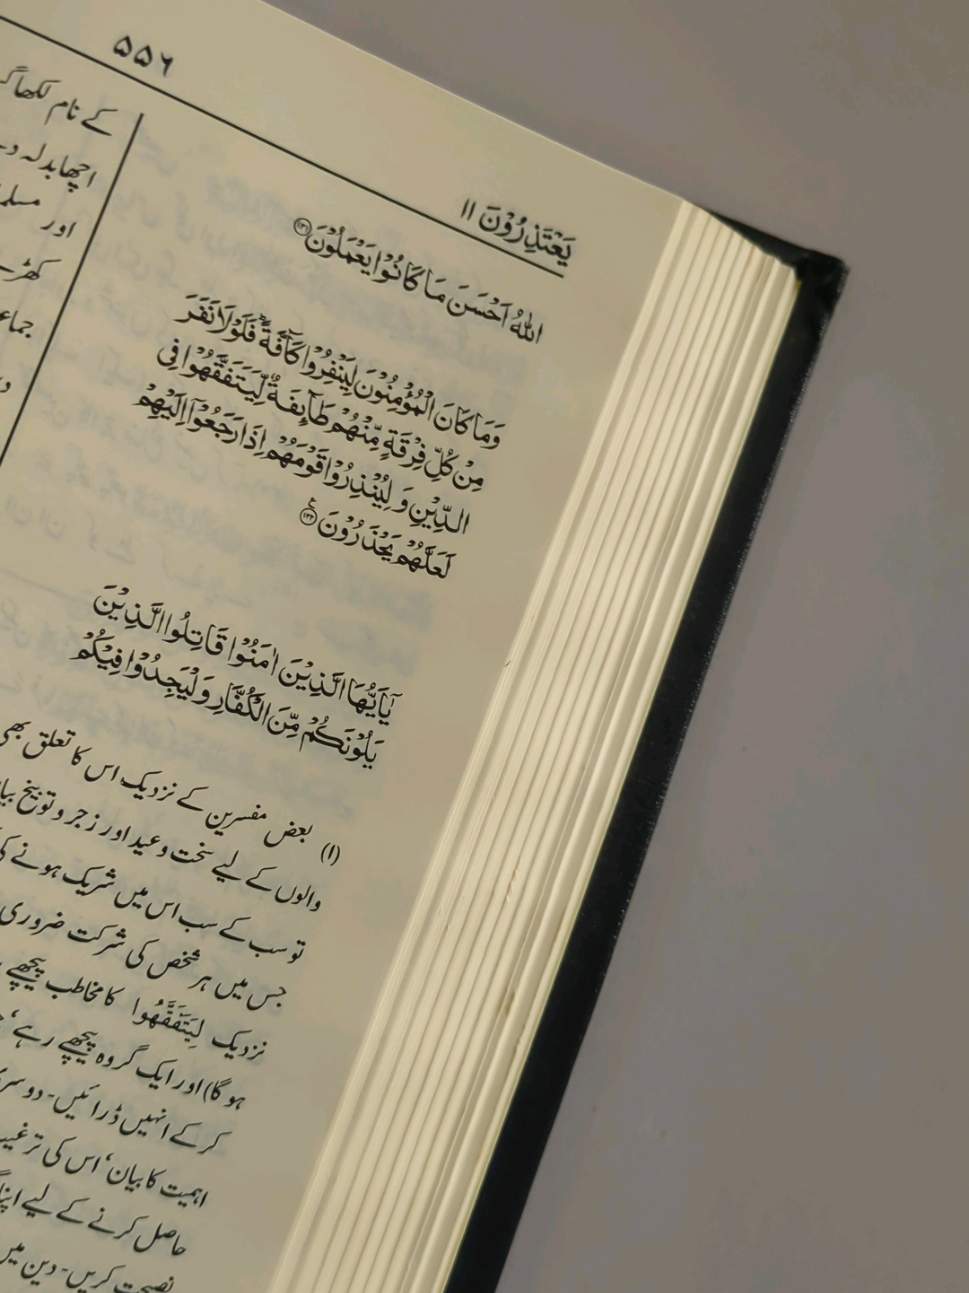 ۵۵۶
یَعْتَذِرُوْنَ ۱۱
اللّٰهُ اَحْسَنَ مَا كَانُوْا یَعْمَلُوْنَ ۝۱۲۱
وَمَا كَانَ الْمُؤْمِنُوْنَ لِیَنْفِرُوْا كَآفَّةً ؕ فَلَوْلَا نَفَرَ
مِنْ كُلِّ فِرْقَةٍ مِّنْهُمْ طَآىِٕفَةٌ لِّیَتَفَقَّهُوْا فِی
الدِّیْنِ وَ لِیُنْذِرُوْا قَوْمَهُمْ اِذَا رَجَعُوْۤا اِلَیْهِمْ
لَعَلَّهُمْ یَحْذَرُوْنَ ۝۱۲۲ ع
یٰۤاَیُّهَا الَّذِیْنَ اٰمَنُوْا قَاتِلُوا الَّذِیْنَ
یَلُوْنَكُمْ مِّنَ الْكُفَّارِ وَلْیَجِدُوْا فِیْكُمْ
کے نام لکھا
اچھا بدلہ
اور
(۱) بعض مفسرین کے نزدیک اس کا تعلق بھی
والوں کے لیے سخت وعید اور زجر و توبیخ
تو سب کے سب اس میں شریک ہونے
جس میں ہر شخص کی شرکت ضروری
نزدیک لِیَتَفَقَّهُوا کا مخاطب پیچھے
ہو گا) اور ایک گروہ پیچھے رہے'
کر کے انہیں ڈرائیں۔ دوسری
اہمیت کا بیان' اس کی ترغیب
حاصل کرنے کے لیے
نصیحت کریں۔ دین میں